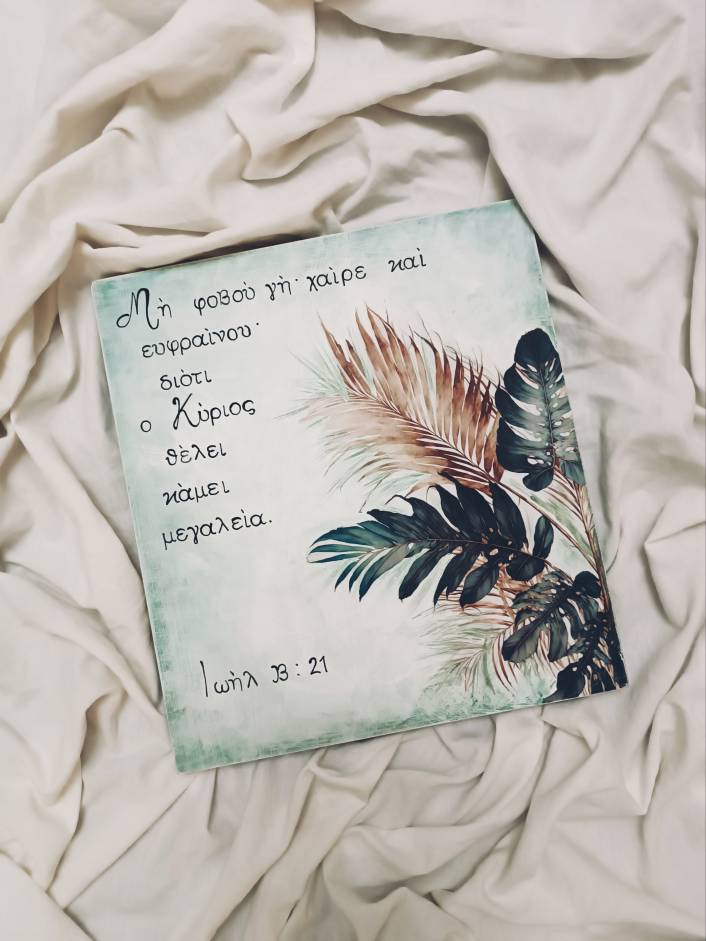 Μὴ φοβοὺ γὴ· χαὶρε καὶ
ευφραὶνου·
διὸτι
ο Κὺριος
θὲλει
κὰμει
μεγαλεὶα.
Ιωὴλ Β : 21